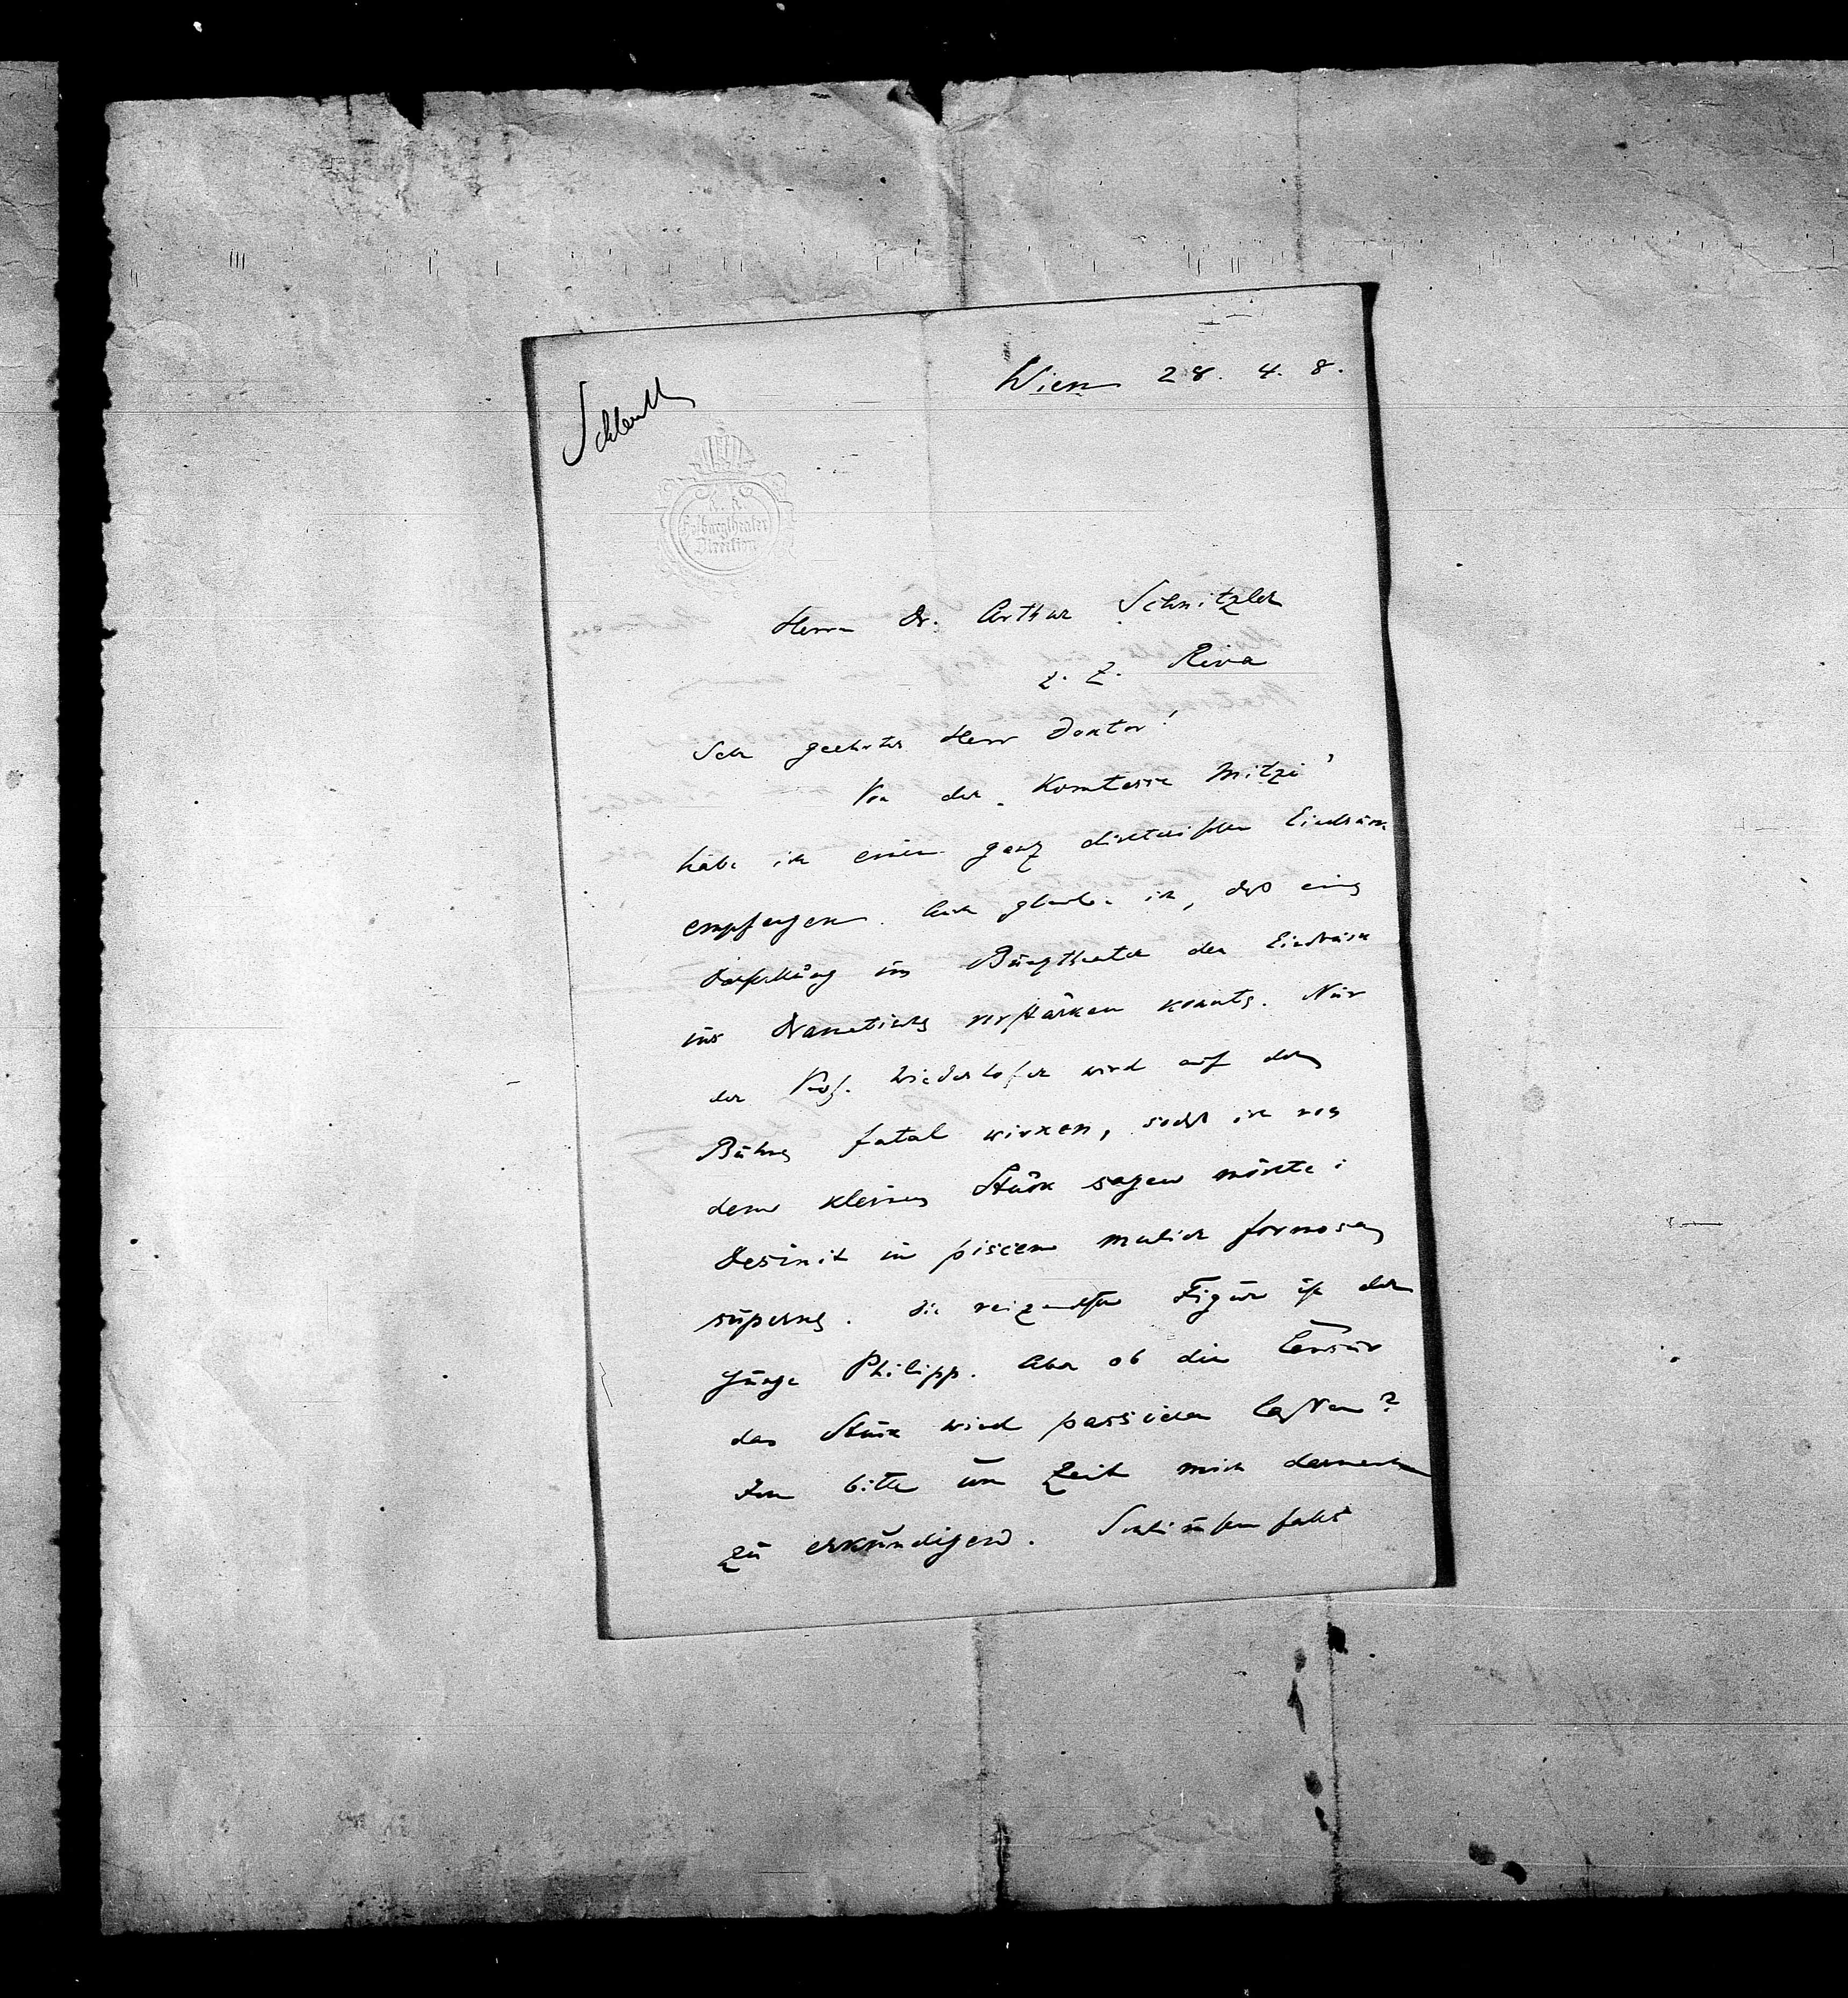 Wien 28. 4. 8.
Schlenth
K. K.
Hofburgtheater
Direction
Herrn Dr. Arthur Schnitzler
z. Z. Riva
Sehr geehrter Herr Doktor!
Von der „Komtesse Mitzi"
habe ich einen ganz distinkten Eindruck
empfangen. Auch glaube ich, daß eine
Darstellung im Burgtheater den Eindruck
ins Dramatische verstärken könnte. Nur
der Prof. Windhofer wird auf der
Bühne fatal wirken, sodaß ich von
dem kleinen Stück sagen möchte:
Desinit in piscem mulier formosa
superne. Die reizendste Figur ist der
junge Philipp. Aber ob die Censur
das Stück wird passieren lassen?
Ich bitte um Zeit mich darnach
zu erkundigen. Schlimmsten falls